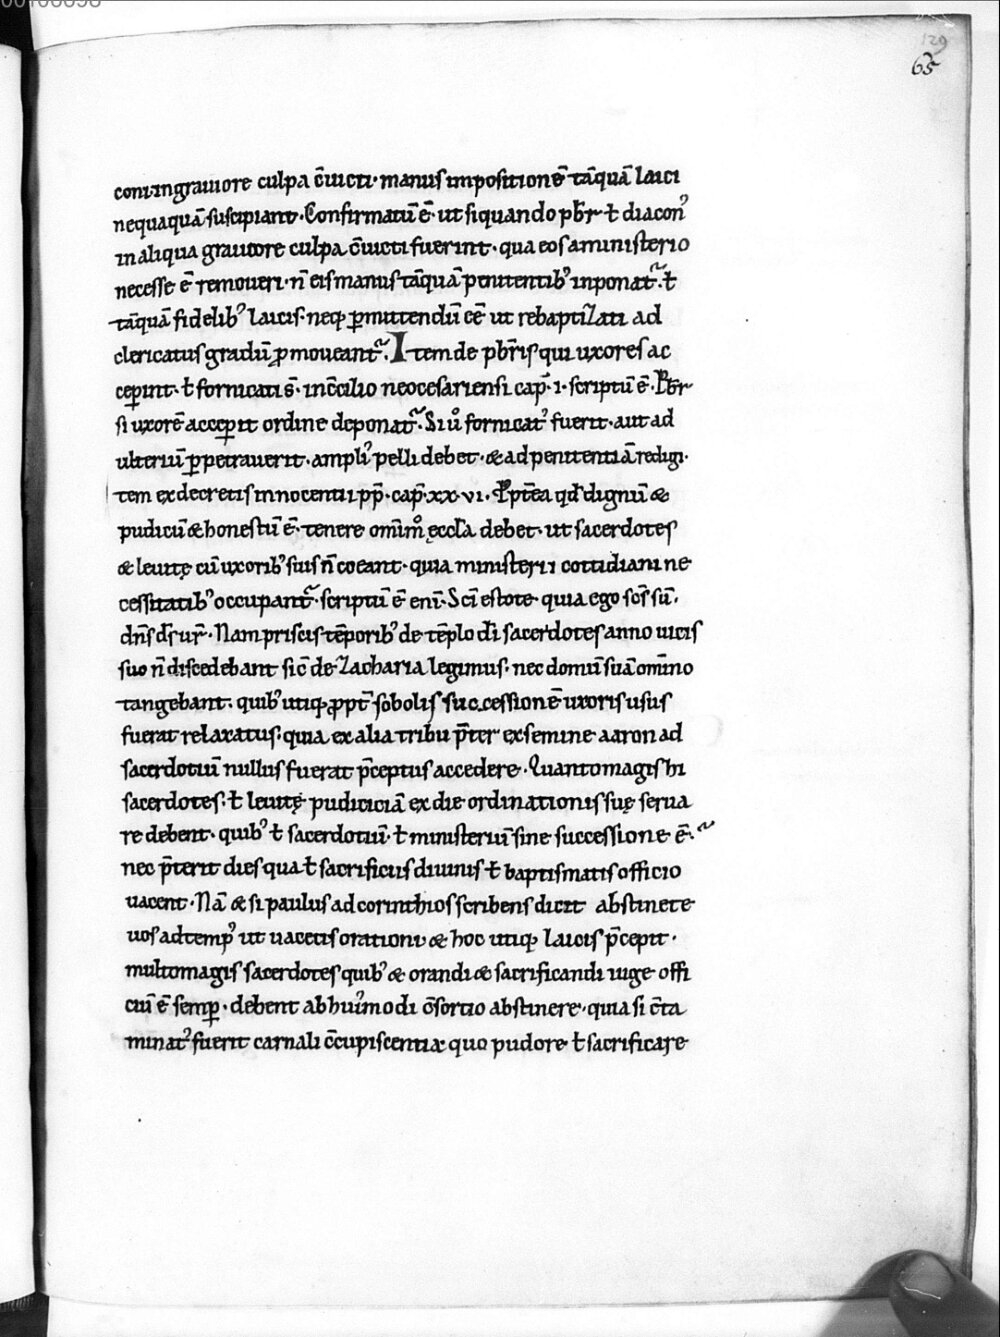 00100698
129
65
coni in grauiore culpa c̄uicti· manus impositionē tāquā laici
nequaquā suscipiant· Confirmatū ē· ut siquando pbr̄ ł diacon᾿
in aliqua grauiore culpa c̄uicti fuerint· qua eos a ministerio
necesse ē remoueri· n̄ eis manus tāquā penitentib᾿ inponat᷑· ł
tāquā fidelib᾿ laicis· neq; ꝑmittendū eē ut rebaptizati ad
clericatus gradū ꝓmoueant᷑· Item de pbr̄is qui uxores ac
ceꝑint· ł fornicati s̄· in c̄cilio neocesariensi cap̄· i· scriptū ē· Pbr̄
si uxorē acceꝑit ordine deponat᷑· Si ů fornicat᾿ fuerit· aut ad
ulteriū ꝑpetrauerit· ampli᾿ pelli debet· & ad penitentiā redigi·
tem ex decretis innocentii pp̄· cap̄· xx·vi· P̄ptea qd̄ dignū &
pudicū & honestū ē· tenere om̄im̊ ęccl̄a debet· ut sacerdotes
& leuitę cū uxorib᾿ suis n̄ coeant· quia ministerii cottidiani ne
cessitatib᾿ occupant᷑· scriptū ē eni᷑· Sc̄i estote quia ego sc̄s sū·
dn̄s ds̄ ur̄· Nam priscis tēporib᾿ de tēplo dī sacerdotes anno uicis
suo n̄ discedebant sic̄ de zacharia legimus· nec domū suā om̄ino
tangebant· quib᾿ utiq; ꝓpt̄ sobolis successionē uxoris usus
fuerat relaxatus· quia ex alia tribu p̄ter ex semine aaron ad
sacerdotiū nullus fuerat p̄ceptus accedere· Quanto magis hi
sacerdotes· ł leuitę pudiciciā ex die ordinationis suę serua
re debent· quib᾿ ł sacerdotiū· ł ministeriū sine successione ē·
nec p̄terit dies qua ł sacrificiis diuinis ł baptismatis officio
uacent· Nā & si paulus ad corinthios scribens dicit abstinete
uos ad temp᾿ ut uacetis orationi & hoc utiq; laicis p̄cepit·
multo magis sacerdotes quib᾿ & orandi & sacrificandi iuge offi
ciū ē semꝑ· debent ab hui᾿modi c̄sortio abstinere· quia si c̄ta
minat᾿ fuerit carnali c̄cupiscentia quo pudore ł sacrificare